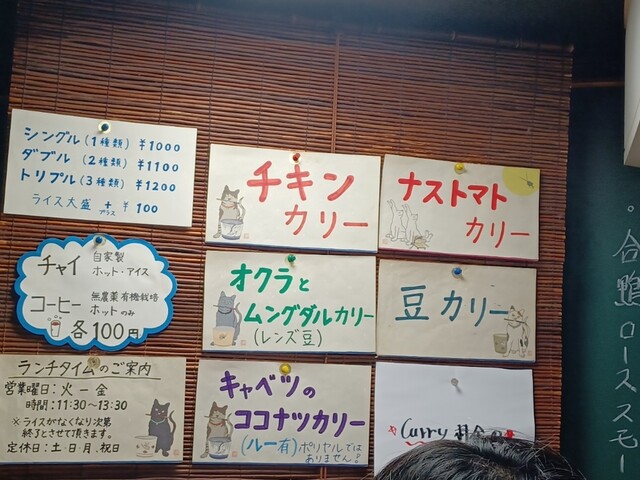 シングル(1種類) ¥1000
ダブル (2種類) ¥1100
トリプル(3種類) ¥1200
ライス大盛 +プラス ¥100
チャイ 自家製
ホット・アイス
コーヒー 無農薬有機栽培
ホットのみ
各100円
ランチタイムのご案内
営業曜日:火ー金
時間:11:30〜13:30
※ライスがなくなり次第
終了とさせて頂きます。
定休日:土・日・月、祝日
チキン
カリー
ナストマト
カリー
オクラと
ムングダルカリー
(レンズ豆)
豆カリー
キャベツの
ココナツカリー
(ルー有)ポリヤルでは
ありません!
Curry
。合鴨ローススモー